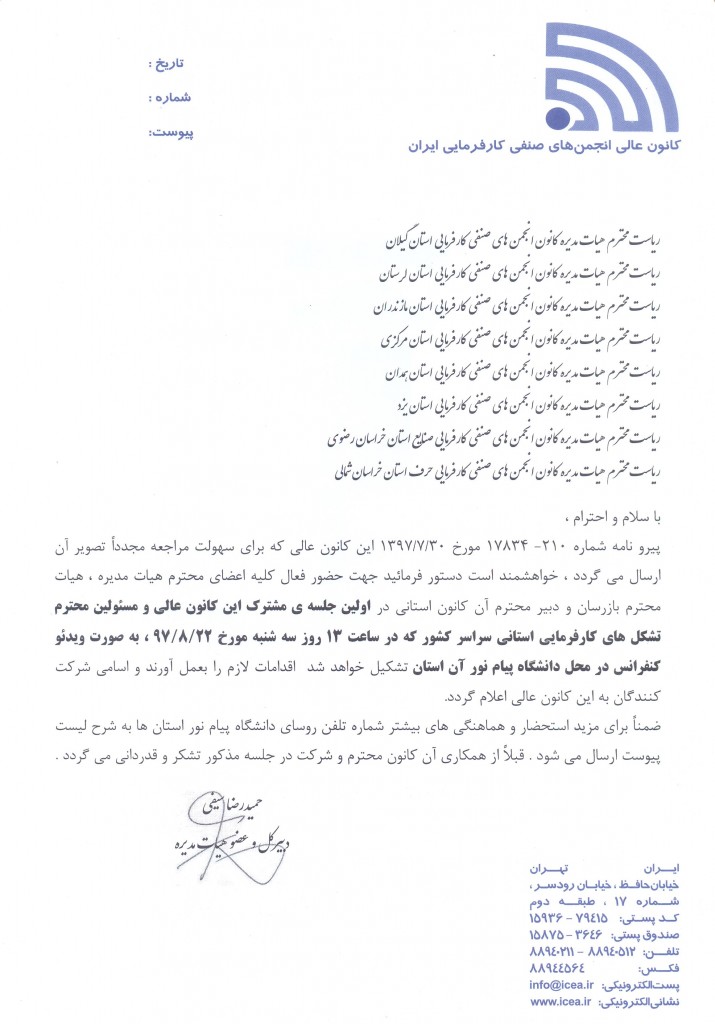 تاریخ :
شماره :
پیوست:
کانون عالی انجمن‌های صنفی کارفرمایی ایران
ریاست محترم هیات مدیره کانون انجمن های صنفی کارفرمایی استان گیلان
ریاست محترم هیات مدیره کانون انجمن های صنفی کارفرمایی استان لرستان
ریاست محترم هیات مدیره کانون انجمن های صنفی کارفرمایی استان مازندران
ریاست محترم هیات مدیره کانون انجمن های صنفی کارفرمایی استان مرکزی
ریاست محترم هیات مدیره کانون انجمن های صنفی کارفرمایی استان همدان
ریاست محترم هیات مدیره کانون انجمن های صنفی کارفرمایی استان یزد
ریاست محترم هیات مدیره کانون انجمن های صنفی کارفرمایی صنایع استان خراسان رضوی
ریاست محترم هیات مدیره کانون انجمن های صنفی کارفرمایی حرف استان خراسان شمالی
با سلام و احترام ،
پیرو نامه شماره ۲۱۰- ۱۷۸۳۴ مورخ ۱۳۹۷/۷/۳۰ این کانون عالی که برای سهولت مراجعه مجدداً تصویر آن
ارسال می گردد ، خواهشمند است دستور فرمائید جهت حضور فعال کلیه اعضای محترم هیات مدیره ، هیات
محترم بازرسان و دبیر محترم آن کانون استانی در اولین جلسه ی مشترک این کانون عالی و مسئولین محترم
تشکل های کارفرمایی استانی سراسر کشور که در ساعت ۱۳ روز سه شنبه مورخ ۹۷/۸/۲۲ ، به صورت ویدئو
کنفرانس در محل دانشگاه پیام نور آن استان تشکیل خواهد شد اقدامات لازم را بعمل آورند و اسامی شرکت
کنندگان به این کانون عالی اعلام گردد.
ضمناً برای مزید استحضار و هماهنگی های بیشتر شماره تلفن روسای دانشگاه پیام نور استان ها به شرح لیست
پیوست ارسال می شود . قبلاً از همکاری آن کانون محترم و شرکت در جلسه مذکور تشکر و قدردانی می گردد .
حمیدرضا سیفی
دبیرکل و عضو هیات مدیره
ایران تهران
خیابان حافظ ، خیابان رودسر ،
شماره ۱۷ ، طبقه دوم
کد پستی: ۷۹۴۱۵ - ۱۵۹۳۶
صندوق پستی: ۳۶۴۶ - ۱۵۸۷۵
تلفن: ۸۸۹۴۰۵۱۲ - ۸۸۹۴۰۲۱۱
فکس: ۸۸۹۴۴۵۶۴
پست‌الکترونیکی: info@icea.ir
نشانی‌الکترونیکی: www.icea.ir